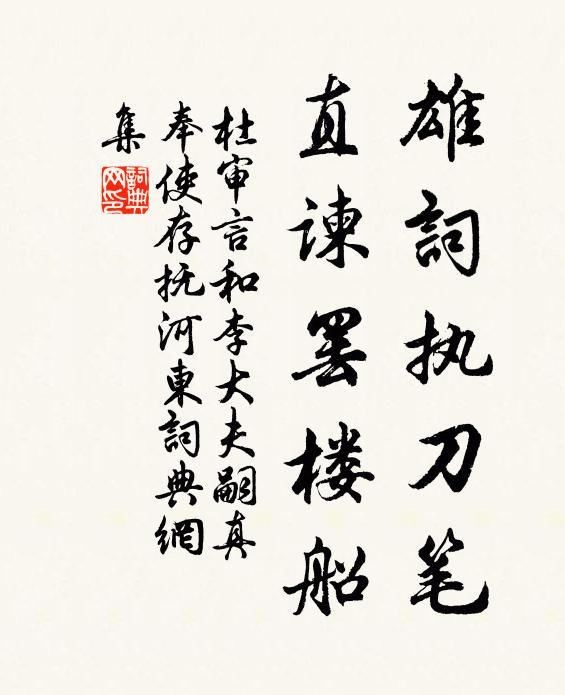 雄詞执刀笔
直諫罢楼船
杜审言和李大夫嗣真
奉使存抚河東詞典網
集
詞典
网印